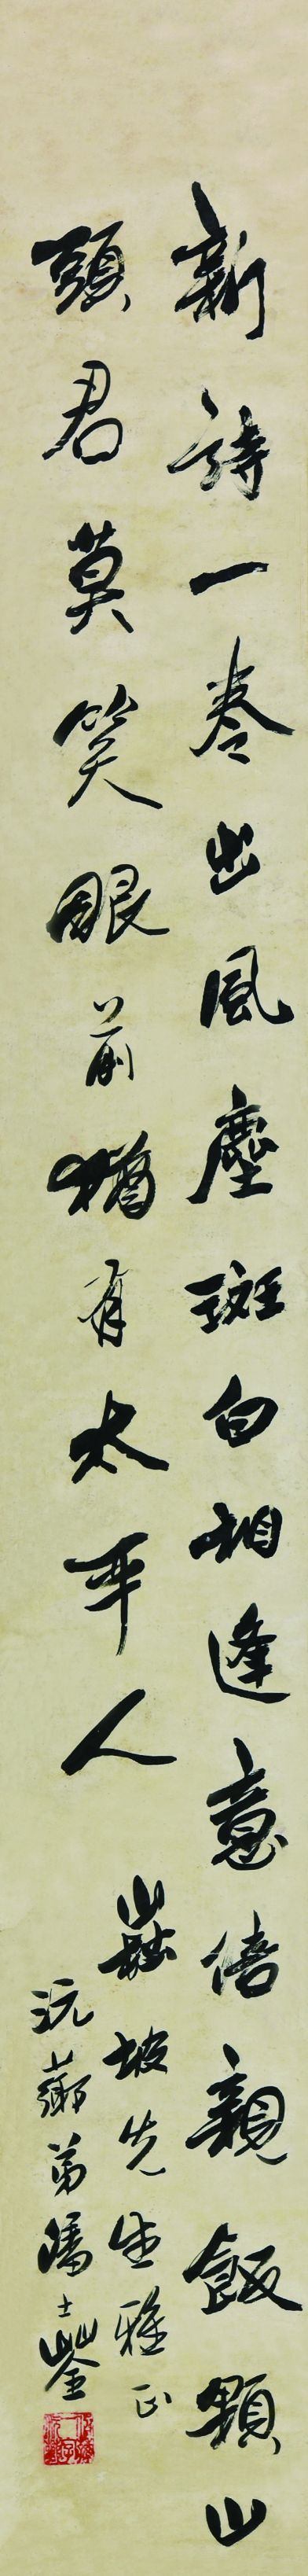 新詩一卷出風塵斑白相逢意倍親飯顆山
頭君莫笑眼前猶有太平人
坡先生雅正
沅薌弟